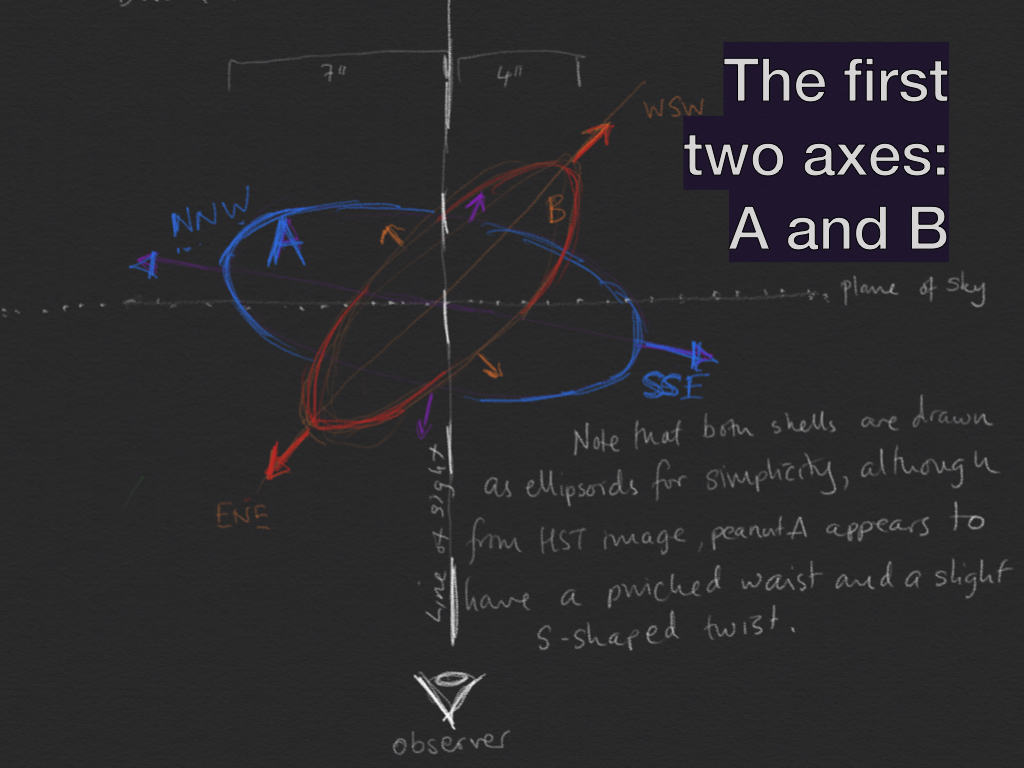 7"
4"
The first
two axes:
A and B
WSW
NNW
A
B
plane of sky
SSE
ENE
Line of sight
Note that both shells are drawn
as ellipsoids for simplicity, although
from HST image, peanut A appears to
have a pinched waist and a slight
S-shaped twist.
observer